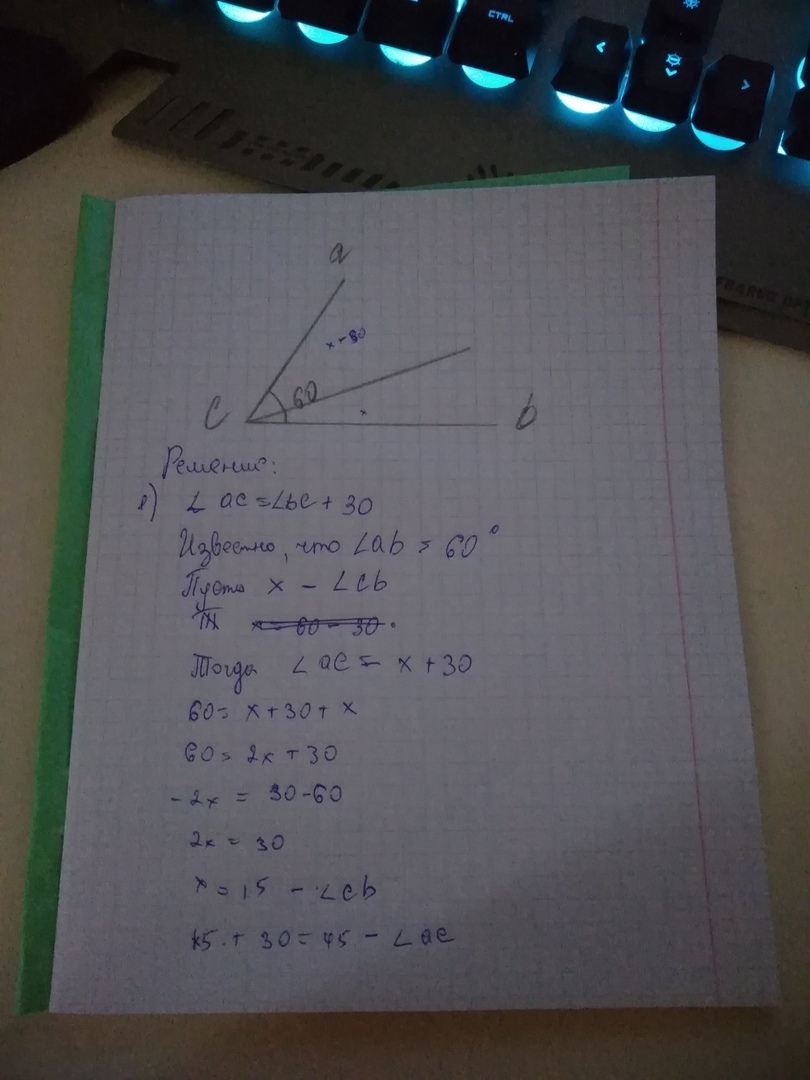 CTRL
a
x+30
60
C
x
b
Решение:
1) ∠ ac = ∠bc + 30
Известно, что ∠ab = 60°
Пусть x - ∠cb
x = 60 - 30
Тогда ∠ac = x + 30
60 = x + 30 + x
60 = 2x + 30
-2x = 30 - 60
2x = 30
x = 15 - ∠cb
15 + 30 = 45 - ∠ac